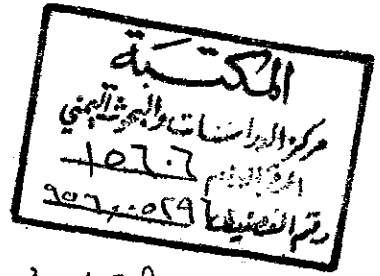 المكتبة
مركز الدراسات والبحوث اليمني
١٥٦٠٦
رقم التصنيف ٩٥٦,٠٠٥٢٩